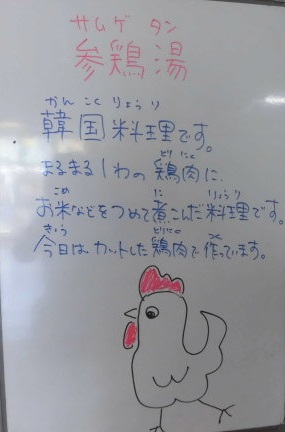 サムゲ タン
参鶏湯
かん こく りょう り
韓国料理です。
とり にく
まるまる1わの鶏肉に、
こめ に りょうり
お米などをつめて煮こんだ料理です。
きょう とりにく つく
今日はカットした鶏肉で作っています。